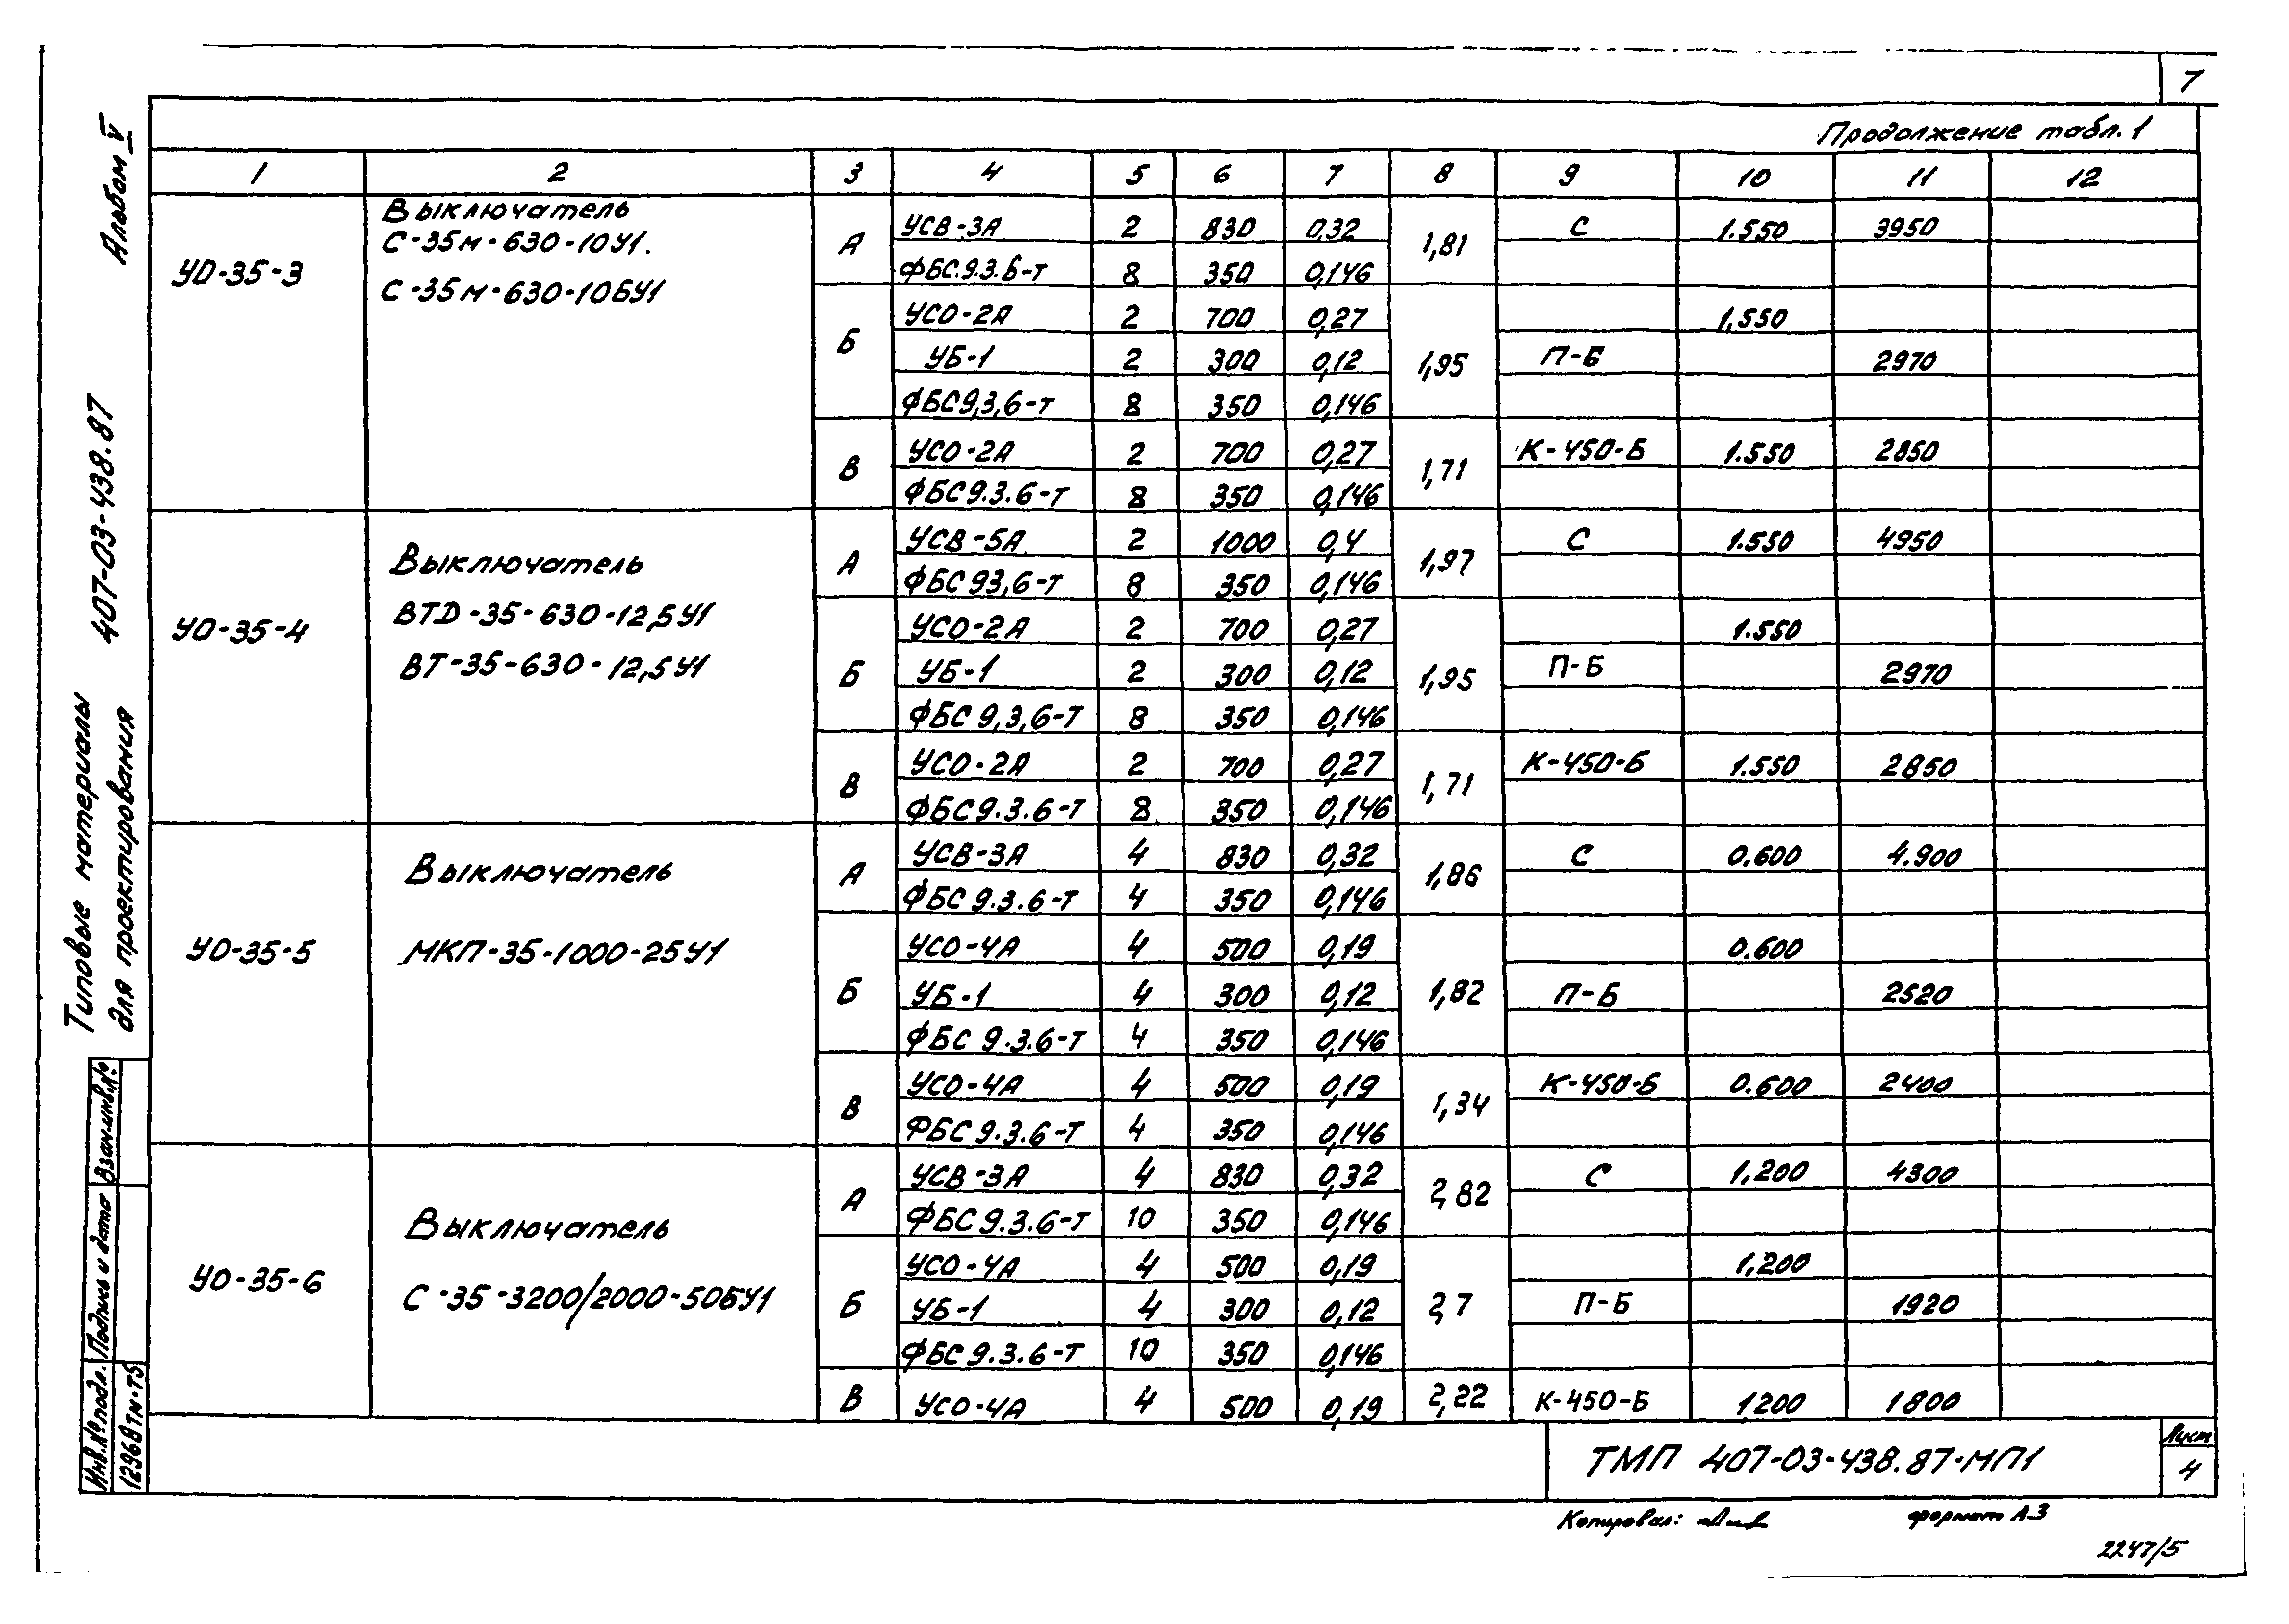 7
Продолжение табл. 1
1 2 3 4 5 6 7 8 9 10 11 12
УО-35-3
Выключатель
С-35м-630-10У1.
С-35м-630-10БУ1
А УСВ-3А 2 830 0,32 1,81 С 1.550 3950
ФБС.9.3.6-т 8 350 0,146
Б УСО-2А 2 700 0,27 1,95 1,550
УБ-1 2 300 0,12 П-Б 2970
ФБС9,3,6-т 8 350 0,146
В УСО-2А 2 700 0,27 1,71 К-450-Б 1.550 2850
ФБС9.3.6-т 8 350 0,146
УО-35-4
Выключатель
ВТД-35-630-12,5У1
ВТ-35-630-12,5У1
А УСВ-5А 2 1000 0,4 1,97 С 1.550 4950
ФБС 93,6-т 8 350 0,146
Б УСО-2А 2 700 0,27 1,95 1.550
УБ-1 2 300 0,12 П-Б 2970
ФБС 9,3,6-т 8 350 0,146
В УСО-2А 2 700 0,27 1,71 К-450-Б 1.550 2850
ФБС9.3.6-т 8 350 0,146
УО-35-5
Выключатель
МКП-35-1000-25У1
А УСВ-3А 4 830 0,32 1,86 С 0.600 4.900
ФБС 9.3.6-т 4 350 0,146
Б УСО-4А 4 500 0,19 1,82 0.600
УБ-1 4 300 0,12 П-Б 2520
ФБС 9.3.6-т 4 350 0,146
В УСО-4А 4 500 0,19 1,34 К-450-Б 0.600 2400
ФБС 9.3.6-т 4 350 0,146
УО-35-6
Выключатель
С-35-3200/2000-50БУ1
А УСВ-3А 4 830 0,32 2,82 С 1,200 4300
ФБС 9.3.6-т 10 350 0,146
Б УСО-4А 4 500 0,19 2,7 1,200
УБ-1 4 300 0,12 П-Б 1920
ФБС 9.3.6-т 10 350 0,146
В УСО-4А 4 500 0,19 2,22 К-450-Б 1,200 1800
ТМП 407-03-438.87-МП1
Лист
4
Копировал:
формат А3
2247/5
Типовые материалы
для проектирования 407-03-438.87 Альбом V
Инв.№подл. Подпись и дата Взам.инв.№
12968тм-т5